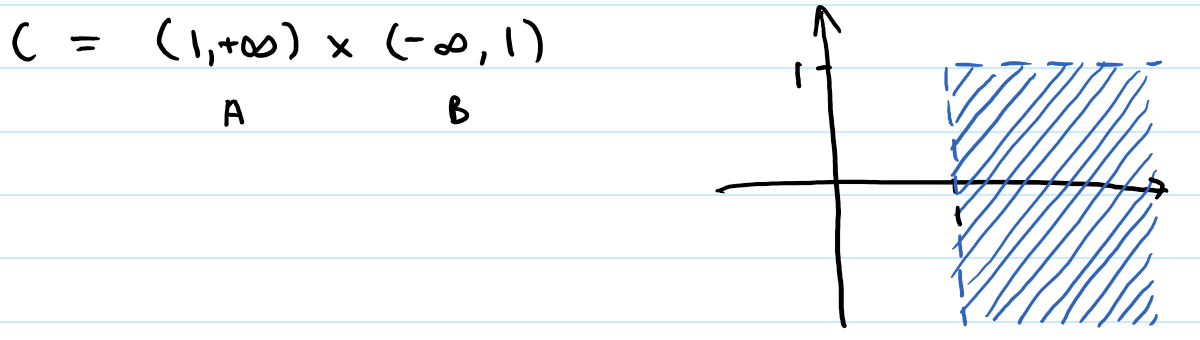 C = (1,+∞) × (-∞, 1)
A B
1
1